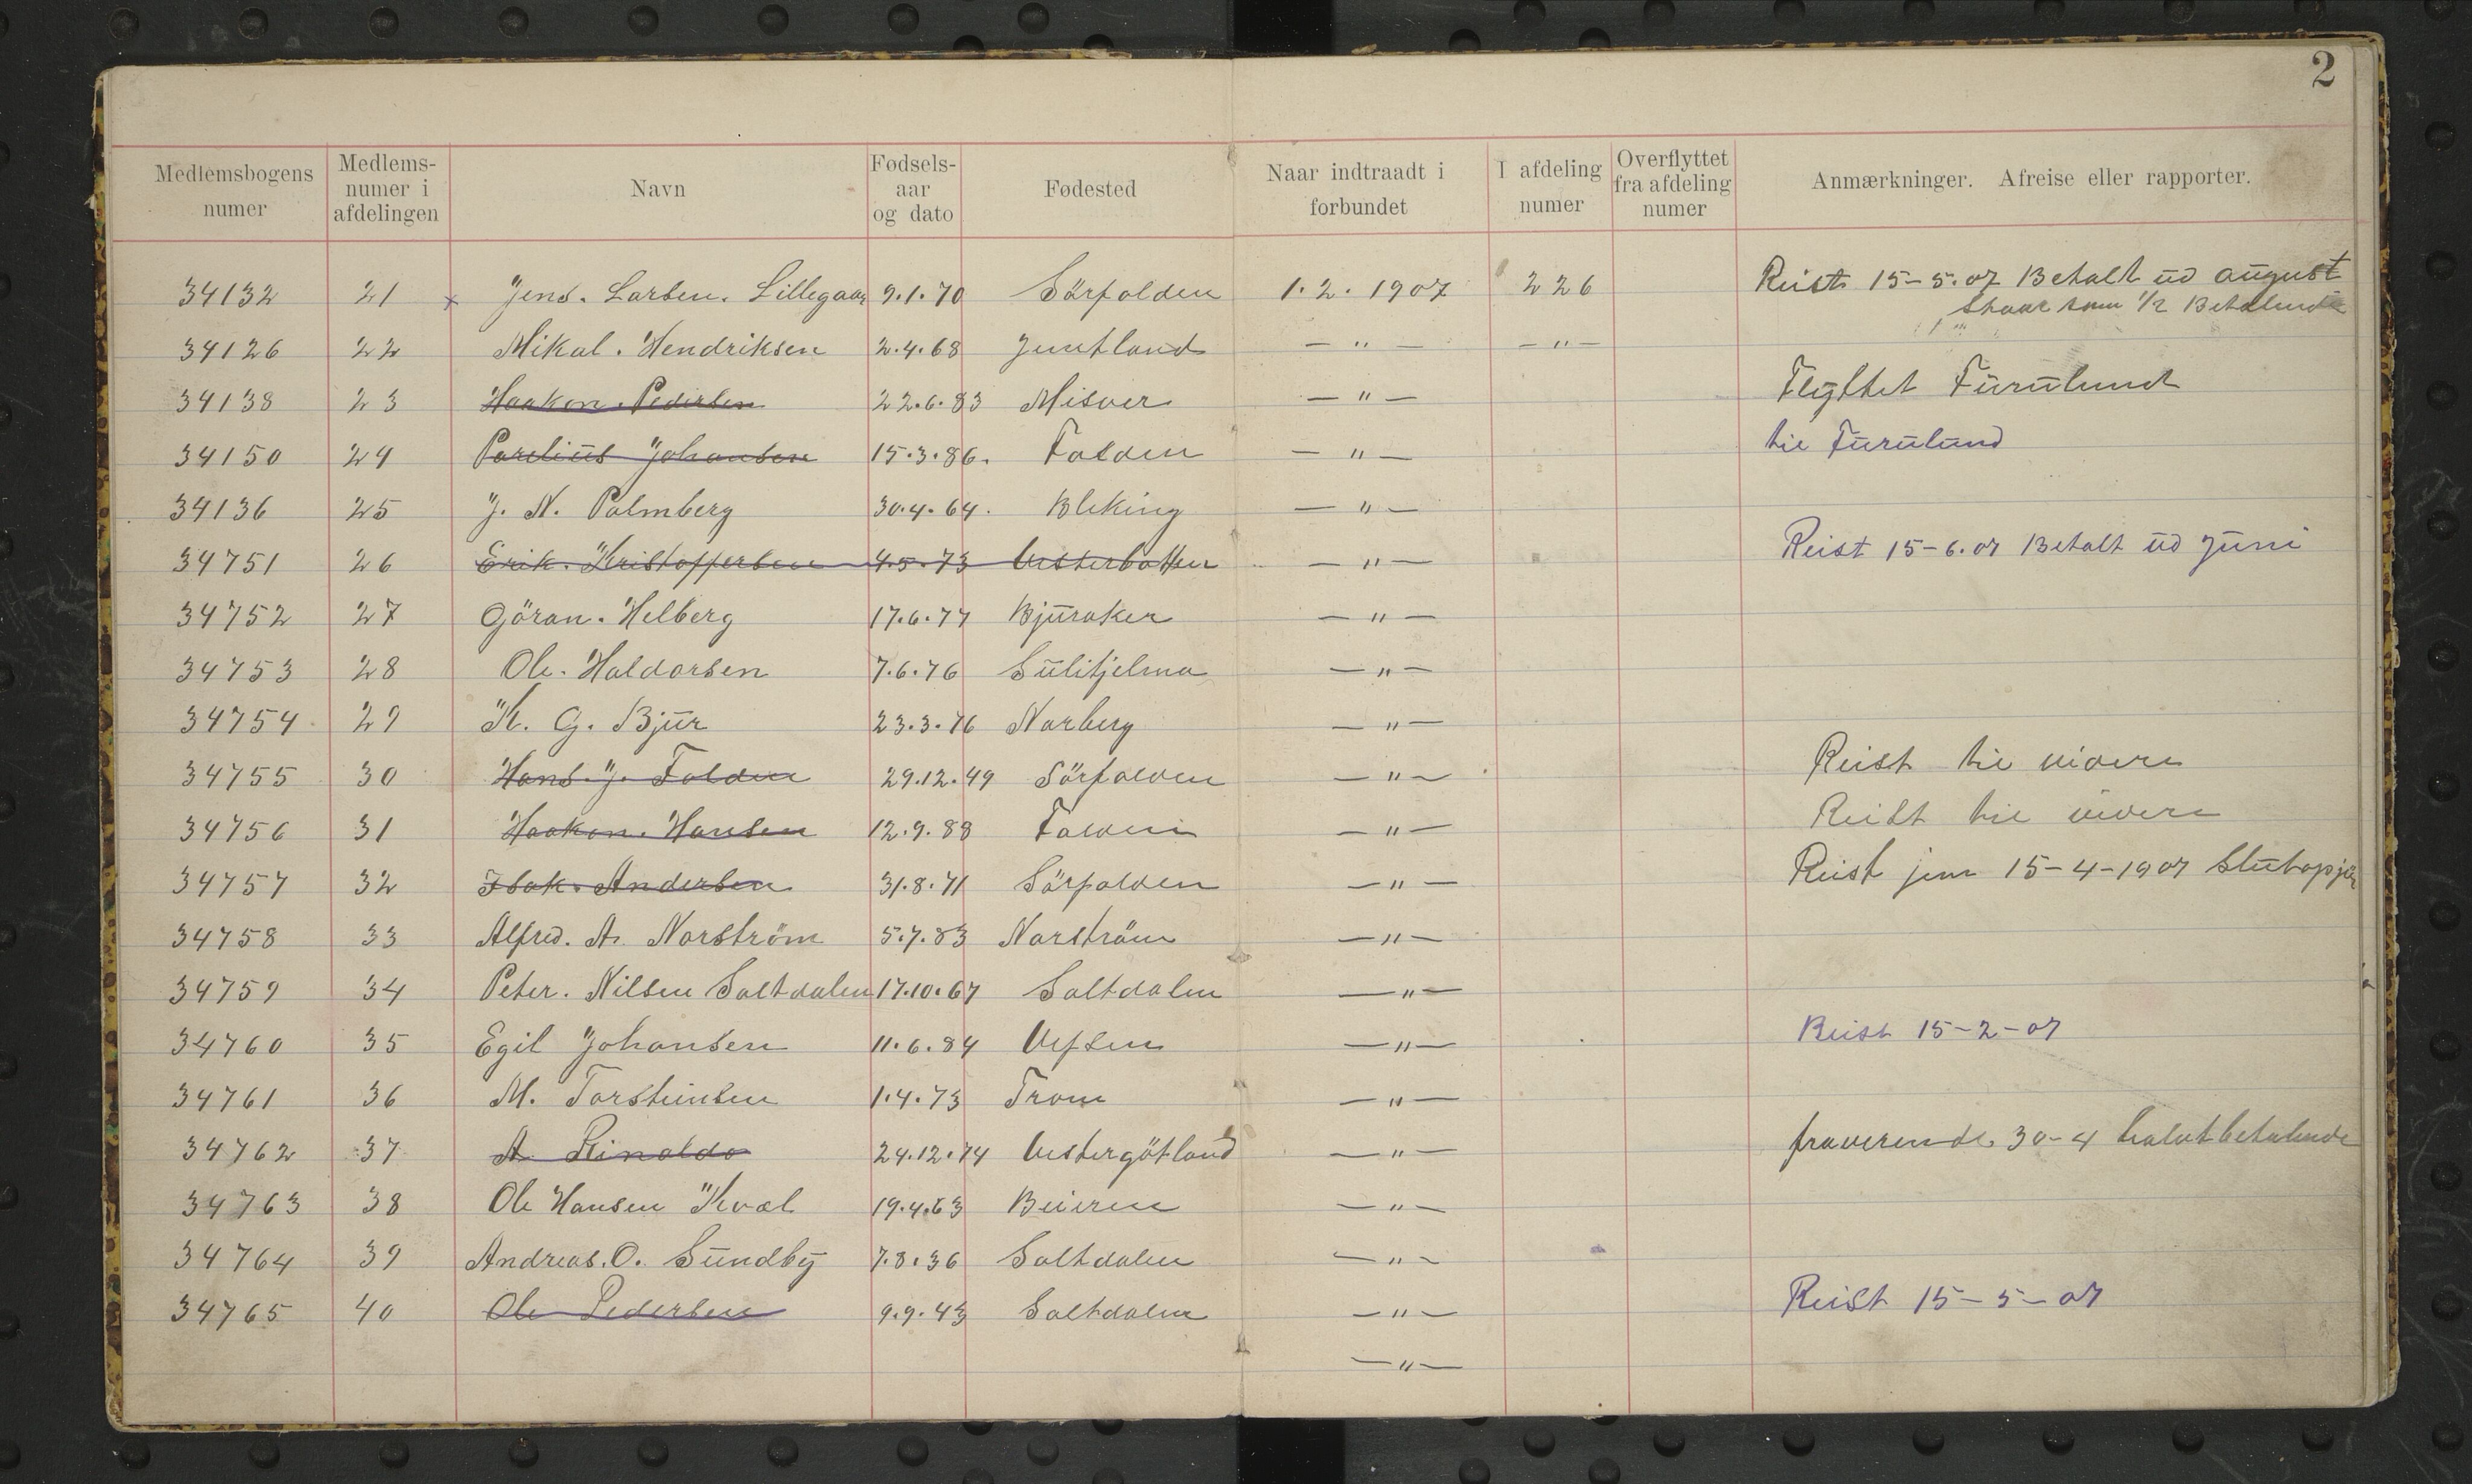 2
Medlemsbogens numer | Medlems-numer i afdelingen | Navn | Fødsels-aar og dato | Fødested | Naar indtraadt i forbundet | I afdeling numer | Overflyttet fra afdeling numer | Anmærkninger. Afreise eller rapporter.
34132 21 x Jens. Larsen. Lillegaar 9.1.70 Sörfolden 1.2.1907 226 Reist 15-5.07 Betalt ud august
Staar som 1/2 Betalende
34126 22 Mikal. Hendriksen 2.4.68 Jemtland —"— —"—
34138 23 Haakon. Pedersen 22.6.83 Misver —"— Flyttet Furulund
34150 24 Parelius Johansen 15.3.86. Folden —"— til Furulund
34136 25 J. N. Palmberg 30.4.64. Bleking —"—
34751 26 Erik. Kristoffersen 4.5.73 Vesterbotten —"— Reist 15-6.07 Betalt ud Juni
34752 27 Göran. Helberg 17.6.77 Bjuraker —"—
34753 28 Ole. Haldorsen 7.6.76 Sulitjelma —"—
34754 29 K. G. Bjur 23.3.76 Norberg —"—
34755 30 Hans. J. Folden 29.12.49 Sörfolden —"— Reist til videre
34756 31 Haakon. Hansen 12.9.88 Folden —"— Reist til videre
34757 32 Isak. Andersen 31.8.71 Sörfolden —"— Reist jem 15-4-1907
34758 33 Alfred. A. Norström 5.7.83 Norström —"—
34759 34 Peter. Nilsen Saltdalen 17.10.67 Saltdalen —"—
34760 35 Egil Johansen 11.6.84 Vefsen —"— Reist 15-2-07
34761 36 M. Torsteinsen 1.4.73 Trom —"—
34762 37 A. Rinaldo 24.12.74 Vestergötland —"— fraverende 30-4 halvtbetalende
34763 38 Ole Hansen Kval 19.4.63 Beieren —"—
34764 39 Andreas. O. Sundby 7.8.36 Saltdalen —"—
34765 40 Ole Pedersen 9.9.43 Saltdalen —"— Reist 15-5-07
—"—